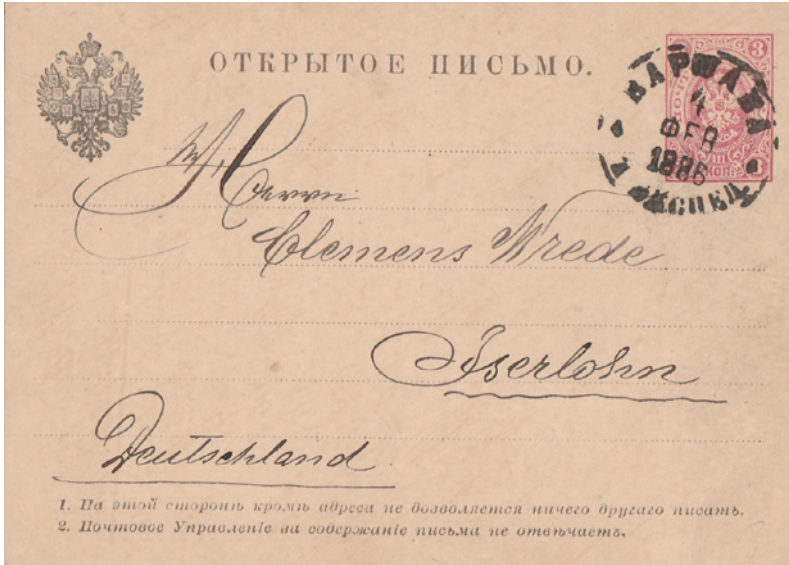 ОТКРЫТОЕ ПИСЬМО.
3
ВАРШАВА
4
ФЕВ
1886
ЭКСПЕД
КОП
3
Herrn
Clemens Wrede
Iserlohn
Deutschland
1. На этой сторонѣ кромѣ адреса не дозволяется ничего другаго писать.
2. Почтовое Управленіе за содержаніе письма не отвѣчаетъ.